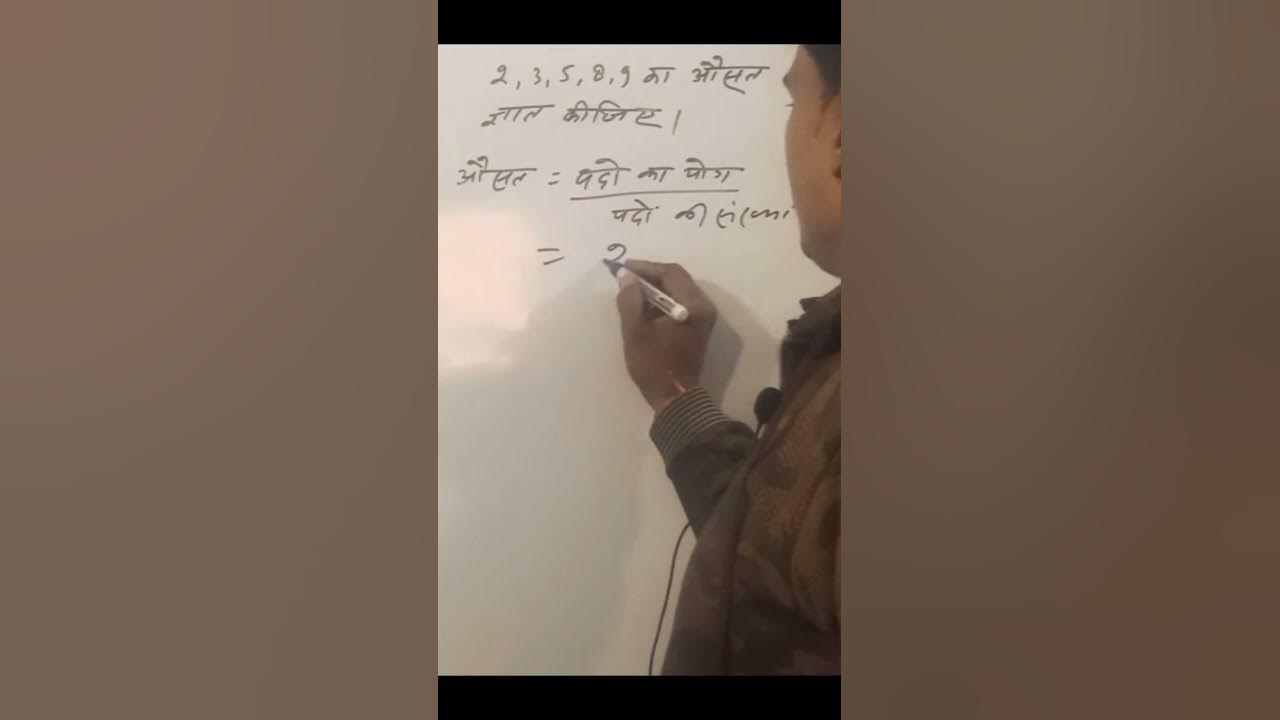 2, 3, 5, 8, 9 का औसत
ज्ञात कीजिए।
औसत = पदो का योग
पदों की संख्या
= 2